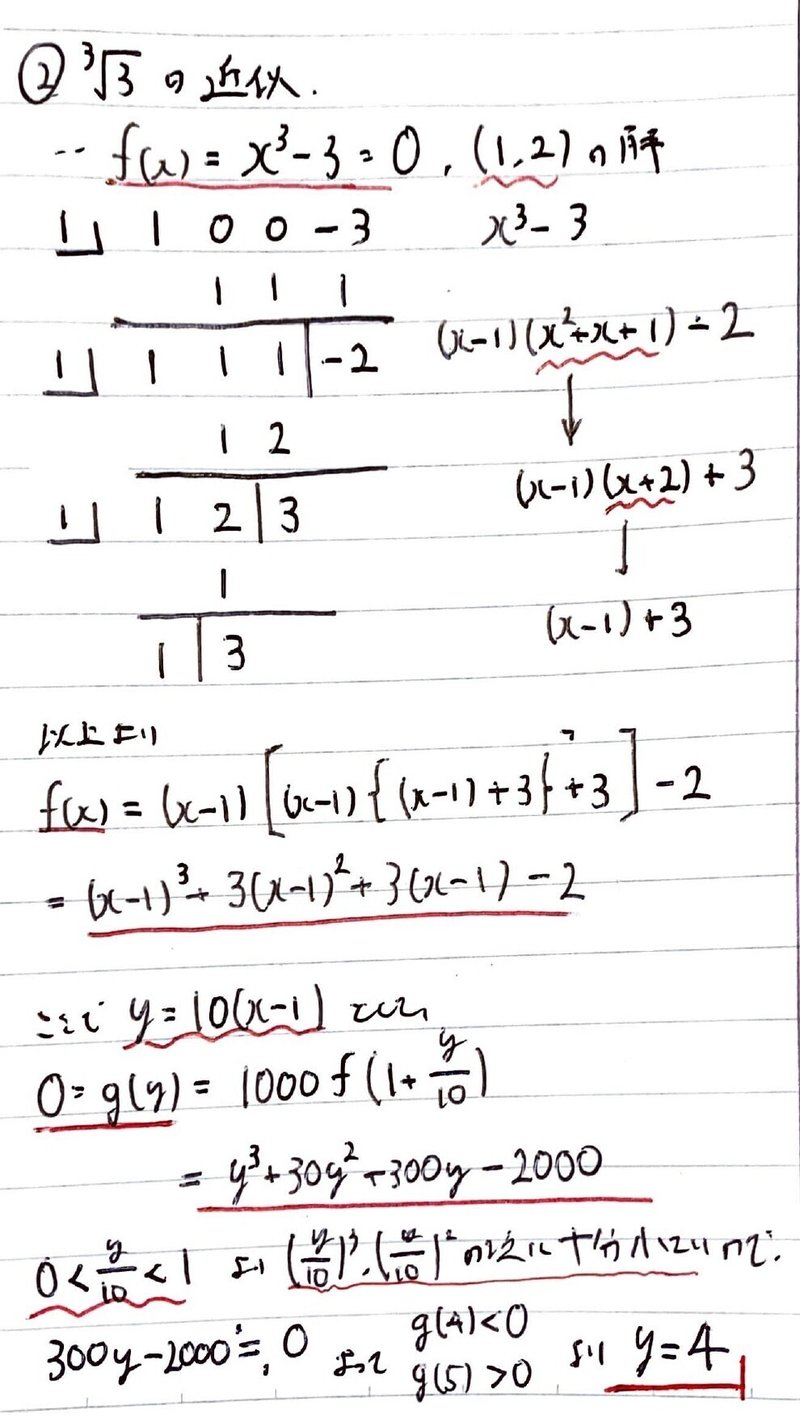 ② ³√3 の近似.
‥ f(x) = x³-3=0, (1,2)の解
1 | 1 0 0 -3 x³-3
1 1 1
1 | 1 1 1 | -2 (x-1)(x²+x+1)-2
↓
1 2
1 | 1 2 | 3 (x-1)(x+2)+3
↓
1
1 | 3 (x-1)+3
以上より
f(x) = (x-1)[(x-1){(x-1)+3}+3]-2
= (x-1)³+3(x-1)²+3(x-1)-2
ここで y=10(x-1)
0=g(y)= 1000f(1+y/10)
= y³+30y²+300y-2000
0<y/10<1 より (y/10)³, (y/10)² 十分小さいので.
300y-2000≒0 よって g(4)<0 より y=4
g(5)>0